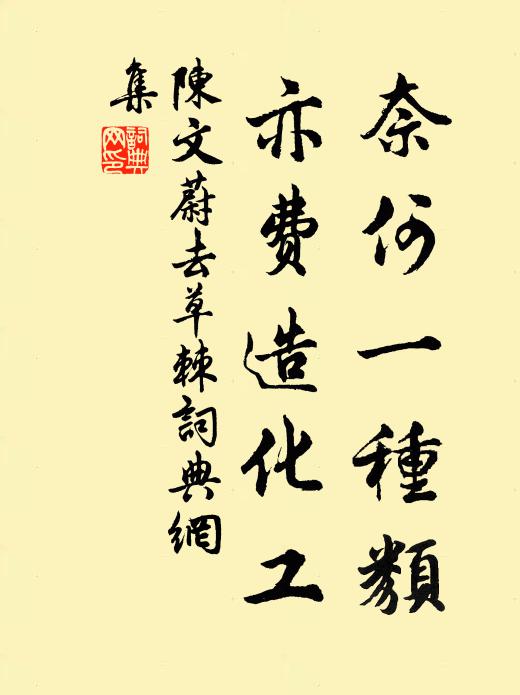 奈何一種類
亦費造化工
陳文蔚去草棘詞典網
集
詞典
网印